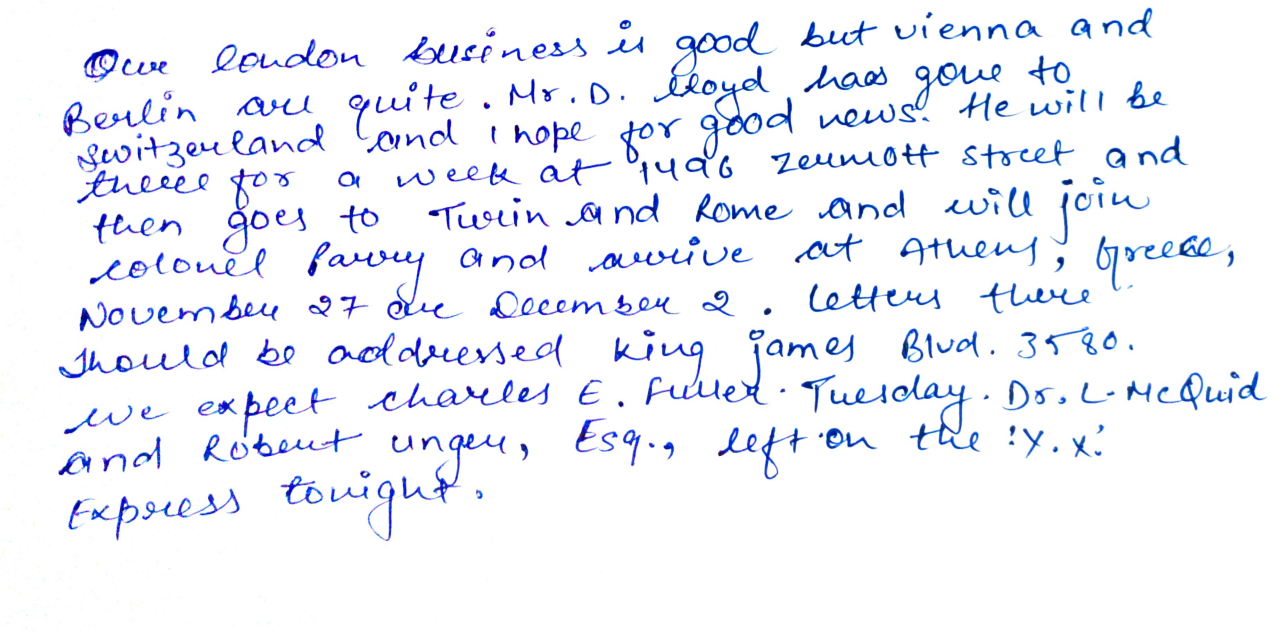 Our london business is good but vienna and
Berlin are quite. Mr. D. lloyd has gone to
switzerland and i hope for good news. He will be
there for a week at 1496 zermott street and
then goes to Turin and Rome and will join
colonel parry and arrive at Athens, Greece,
November 27 or December 2. letters there
should be addressed king james Blvd. 3580.
we expect charles E. Fuller. Tuesday. Dr. L. McQuid
and Robert unger, Esq., left on the "Y.X."
Express tonight.